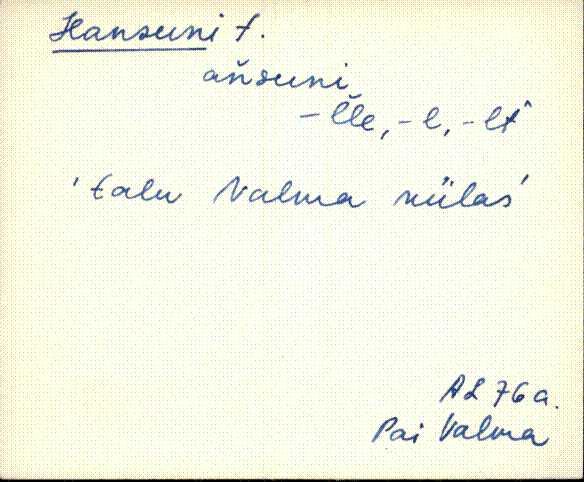 Hansuni t.
ańsuni
-l̆le, -l, -lt
'talu Valma külas'
AL 76 a.
Pai Valma